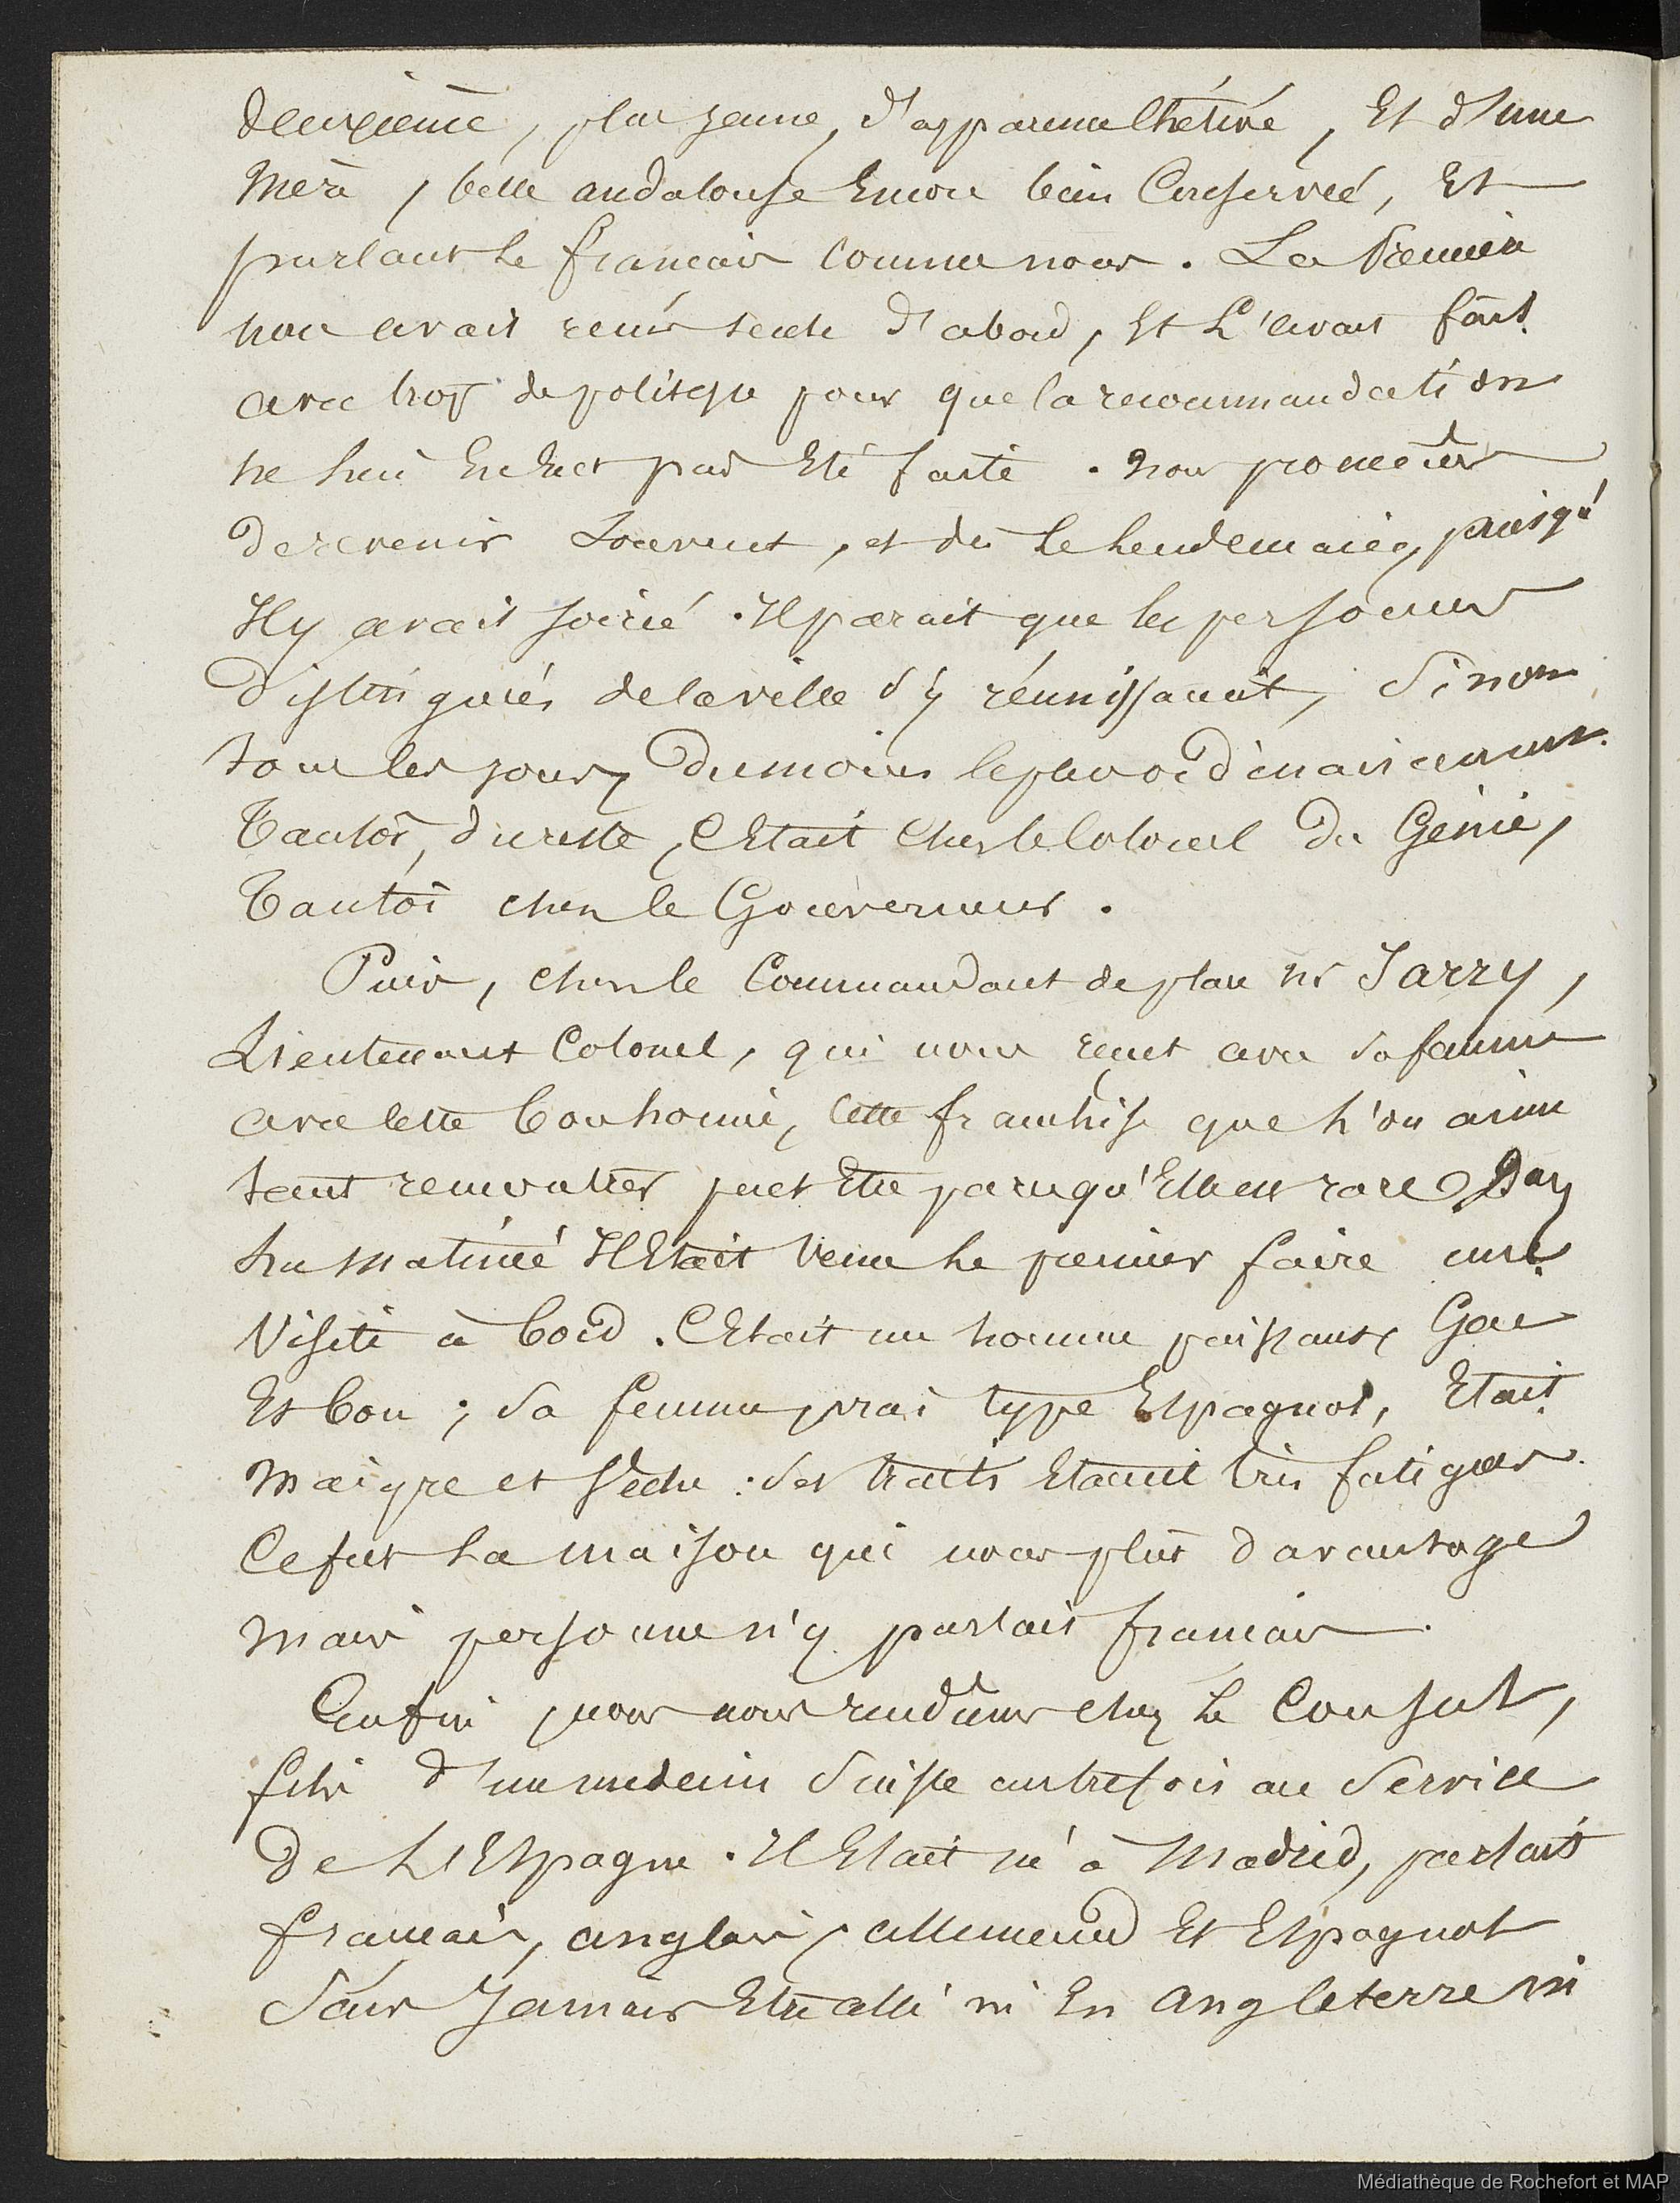 deuxième, plus jeune, d'apparence chétive, Et d'une
Mère, belle andalouse Encore bien Conservée, Et
parlant le francais comme nous. La Premiere
nous avait reçus seule d'abord, Et L'avait fait
avec trop de politesse pour que la recommandation
ne lui En eut pas Eté faite. Nous promîmes
de revenir souvent, et dès le lendemain, puisqu'
Il y avait soirée. Il parait que les personnes
distinguées de la ville s'y réunissaient, Sinon
tous les jours, Du moins le plus ordinairement.
Tantôt, du reste, C'Etait chez le Colonel du Génie,
Tantôt chez le Gouverneur.
Puis, chez le Commandant de place Mr Jarry,
Lieutenant Colonel, qui nous reçut avec sa femme
avec cette bonhomie, cette franchise que l'on aime
tant rencontrer peut Etre parcequ'Elle est rare. Dans
la matinée Il Etait venu le premier faire une
Visite à bord. C'Etait un homme puissant, Gai
Et bon; sa femme, vrai type Espagnol, Etait
Maigre et sèche: ses traits Etaient très fatigués.
Ce fut la maison qui nous plût davantage
Mais personne n'y parlait francais.
Enfin, nous nous rendîmes chez le Consul,
fils d'un medecin Suisse autrefois au Service
De L'Espagne. Il Etait né à Madrid, parlait
francais, anglais, allemand Et Espagnol
Sans Jamais Etre allé ni En Angleterre ni
Médiathèque de Rochefort et MAP